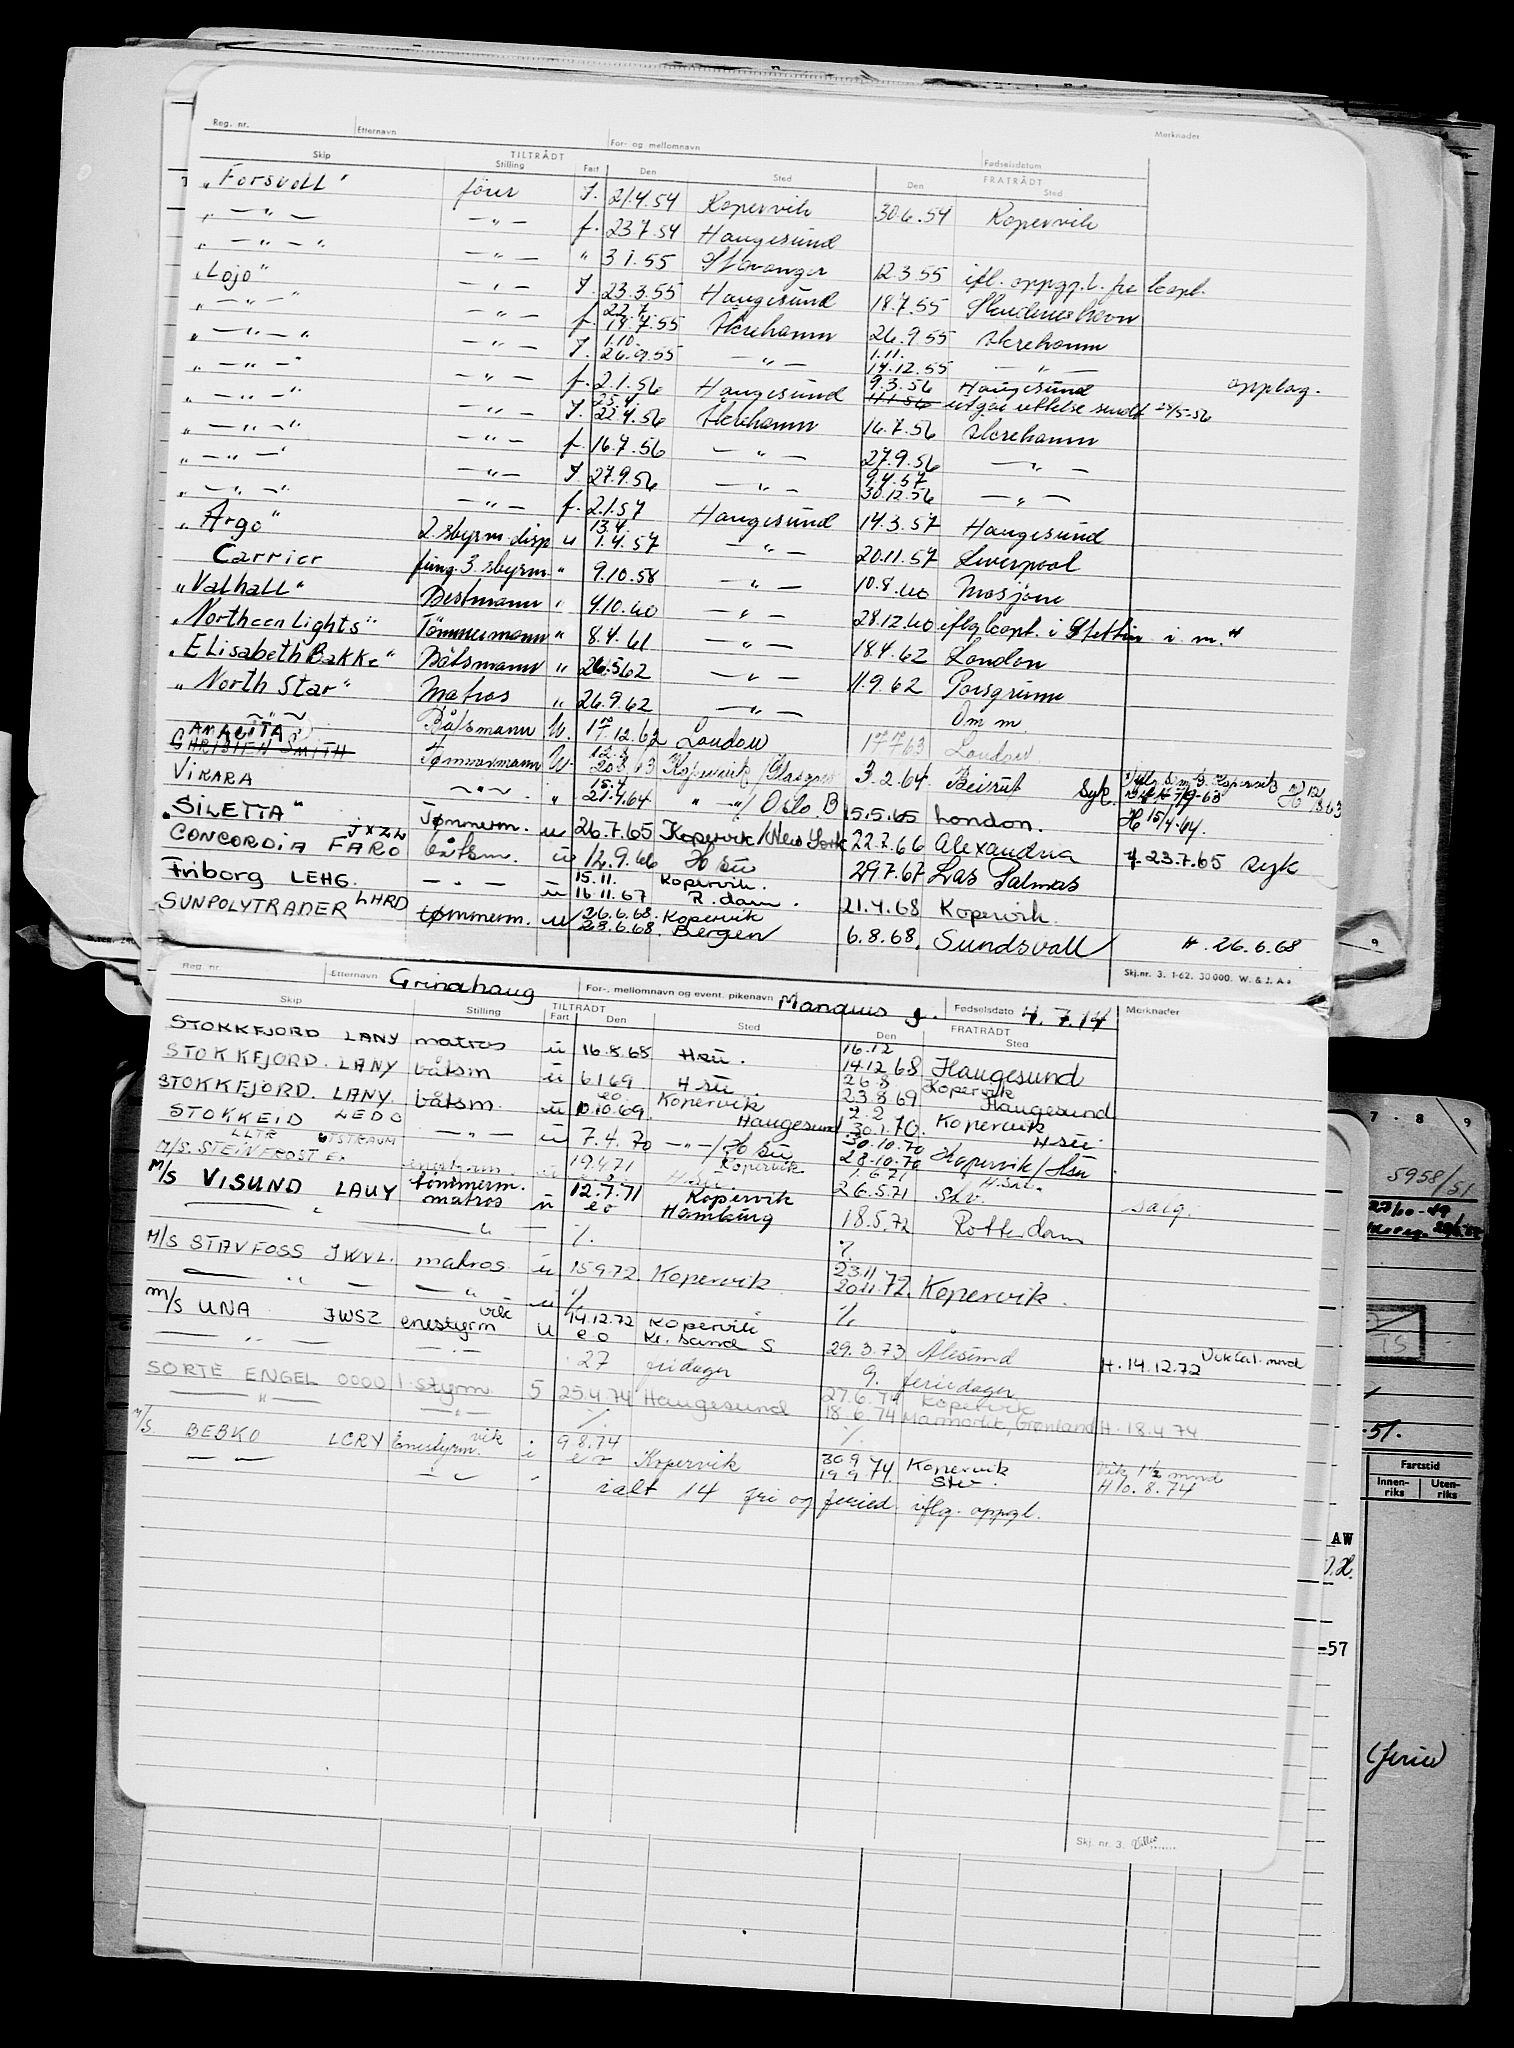 Reg. nr. Etternavn For- og mellomnavn Fødselsdatum Merknader
Skip TILTRÅDT Stilling Fart Den Sted FRATRÅDT Den Sted
"Forsvoll" fører I. 21.4.54 Kopervik 30.6.54 Kopervik
" — " — — " — f. 23.7.54 Haugesund
" — " — " — " — " 3.1.55 Stavanger 12.3.55 ifl. oppgp.l. fra kapt.
"Lojo" — " — I. 23.3.55 Haugesund 18.7.55 Skudeneshavn
" — " — " — " — f. 22.7 18.7.55 Åkrehamn 26.9.55 Åkrehamn
" — " — " — " — I. 1.10. 26.9.55 — " — 1.11. 14.12.55 — " —
" — " — " — " — f. 2.1.56 Haugesund 9.3.56 Haugesund opplag.
" — " — " — " — I. 25.4. 22.4.56 Åkrehamn 16.7.56 Åkrehamn
" — " — " — " — f. 16.7.56 — " — 27.9.56 — " —
" — " — " — " — I. 27.9.56 — " — 9.4.57 30.12.56 — " —
" — " — " — " — f. 2.1.57 Haugesund 14.3.57 Haugesund
"Argo" 2. styrm. disp u 13.4. 1.4.57 — " — 20.11.57 Liverpool
Carrier fung. 3. styrm. " 9.10.58 — " — 10.8.60 Mosjøen
"Valhall" Bestmann " 4.10.60 — " — 28.12.60 iflg kapt. i Stettin i. m. "
"Northern Lights" Tømmermann " 8.4.61 — " — 18.4.62 London
"Elisabeth Bakke" Båtsmann " 26.5.62 — " — 11.9.62 Porsgrunn
"North Star" Matros " 26.9.62 — " — Om m.
~ " ~ Båtsmann U. 17.12.62 London 17.7.63 London
ANKETTA
CHRISTEN SMITH Tømmermann U. 12.8 20.8.63 Kopervik / Glasgow 3.2.64 Beirut Syk.
VIKARA ~ " ~ " 15.4 21.4.64 " — " / Oslo B 15.5.65 London. H 15/4.64.
"SILETTA" JXZL Tømmerm. u 26.7.65 Kopervik / New York 22.7.66 Alexandria H 23.7.65 syk
CONCORDIA FARO båtsm. u 12.9.66 H su 29.7.67 Las Palmas
Friborg LEHG. — " — u 15.11. 16.11.67 Kopervik. R.dam. 21.4.68 Kopervik.
SUNPOLYTRADER LHRD tømmerm. u 26.6.68. 28.6.68. Kopervik Bergen 6.8.68. Sundsvall H. 26.6.68
Skj.nr. 3. 1-62. 30 000. W. & J. A.s
Reg. nr. Etternavn Grindhaug For-, mellomnavn og event. pikenavn Mandius J. Fødselsdato 4.7.14 Merknader
Skip TILTRÅDT Stilling Fart Den Sted FRATRÅDT Den Sted
STOKKFJORD LANY matros u 16.8.68 Hsu. 16.12 14.12.68 Haugesund
STOKKFJORD. LANY båtsm u 6.1.69 H su. 26.8 23.8.69 Kopervik Haugesund
STOKKFJORD. LANY. båtsm. u eo 10.10.69 Kopervik Haugesund 2.2 30.1.70. Kopervik H su
STOKKEID LEDO — " — u 7.4.70 — " — / H su 30.10.70 28.10.70 Kopervik / Hsu
M/S. STEINFROST EX UTSTRAUM LLTR enestyrm. u 19.4.71 Kopervik H.su. 1.6.71 26.5.71 H.su. Sv. salg.
M/S VISUND LAUY tømmerm. matros u 12.7.71 eo Kopervik Hamburg 18.5.72 Rotterdam
— " — ./. ./.
M/S STAVFOSS JWVL. matros u 15.9.72. Kopervik 23.11 20.11.72. Kopervik.
— " — — " — u ./. ./.
M/S UNA JWSZ enestyrm vik u 14.12.72 eo Kopervik Kr. sand S 29.3.73 Ålesund H. 14.12.72
— " — — " — 27 fridager 9. feriedager
SORTE ENGEL OOOO 1. styrm. S 25.4.74 Haugesund 27.6.74 18.6.74 Kopervik Marmorlik, Grønland H. 18.4.74
— " — — " — ./. ./.
M/S. BEBKO LCRY Enestyrm. vik i 9.8.74 eo Kopervik 30.9.74 19.9.74. Kopervik Stv. Vik 1½ mnd H 10.8.74
— " — — " — " ialt 14 fri og feried. iflg. oppgl.
Skj. nr. 3.
7 · 8 · 9
5958/51
27/10-49
-51.
Fartstid
Innenriks Utenriks
AW
-57
(ferie)